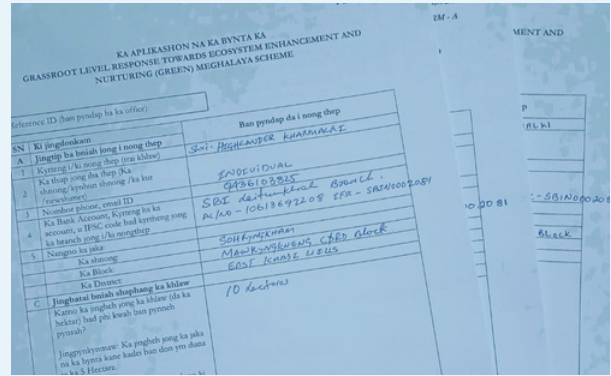 KA APLIKASHON NA KA BYNTA KA
GRASSROOT LEVEL RESPONSE TOWARDS ECOSYSTEM ENHANCEMENT AND
NURTURING (GREEN) MEGHALAYA SCHEME
Reference ID (ban pyndap ha ka office):
SN Ki jingdonkam Ban pyndap da i nong thep
A Jingtip ba bniah jong i nong thep
1 Kyrteng i/ki nong thep (trai khlaw) Shri. HIGHLANDER KHARMALKI
2 Ka thup jong iba thep (Ka shnong/kynhun shnong /ka kur /newshimet) INDIVIDUAL
3 Nombor phone, email ID 9436103825
4 Ka Bank Account, Kyrteng ha ka account, u IFSC code bad kyrteng jong ka branch jong i/ki nongthep SBI Laitumkhrah Branch.
Ac/No - 10613692208 IFS - SBIN0002081
5 Nangno ka jaka
Ka shnong SOHRYNGKHAM
Ka Block MAWRYNGKNENG C&RD Block
Ka District EAST KHASI HILLS
C Jingbatai bniah shaphang ka khlaw
Katno ka jingheh jong ka khlaw (da ka hektar) bad phi kwah ban pynneh pynsah? 10 hectares
Jingpynkynmaw: Ka jingheh jong ka jaka
na ka bynta kane kadei ban don ym duna
ia ka 5 Hectare.
RM - A
MENT AND
ALKI
002081
- SBIN0002081
Block